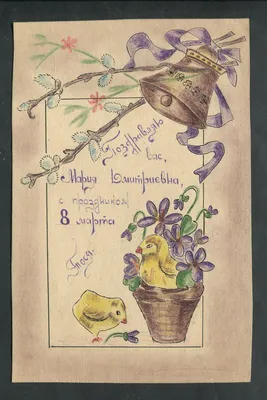 Поздравляю
вас,
Мария Дмитриевна,
с праздником
8 марта
Тося.